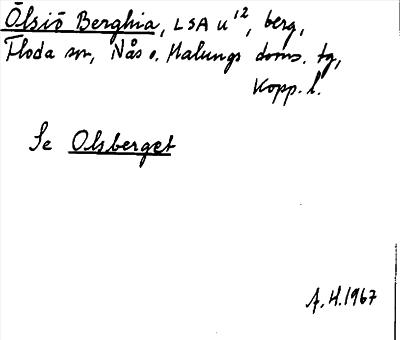 Ölsiö Berghia, LSA u¹², berg,
Floda sn, Nås o. Malungs doms. tg,
Kopp. l.
Se Olsberget
A.H. 1967